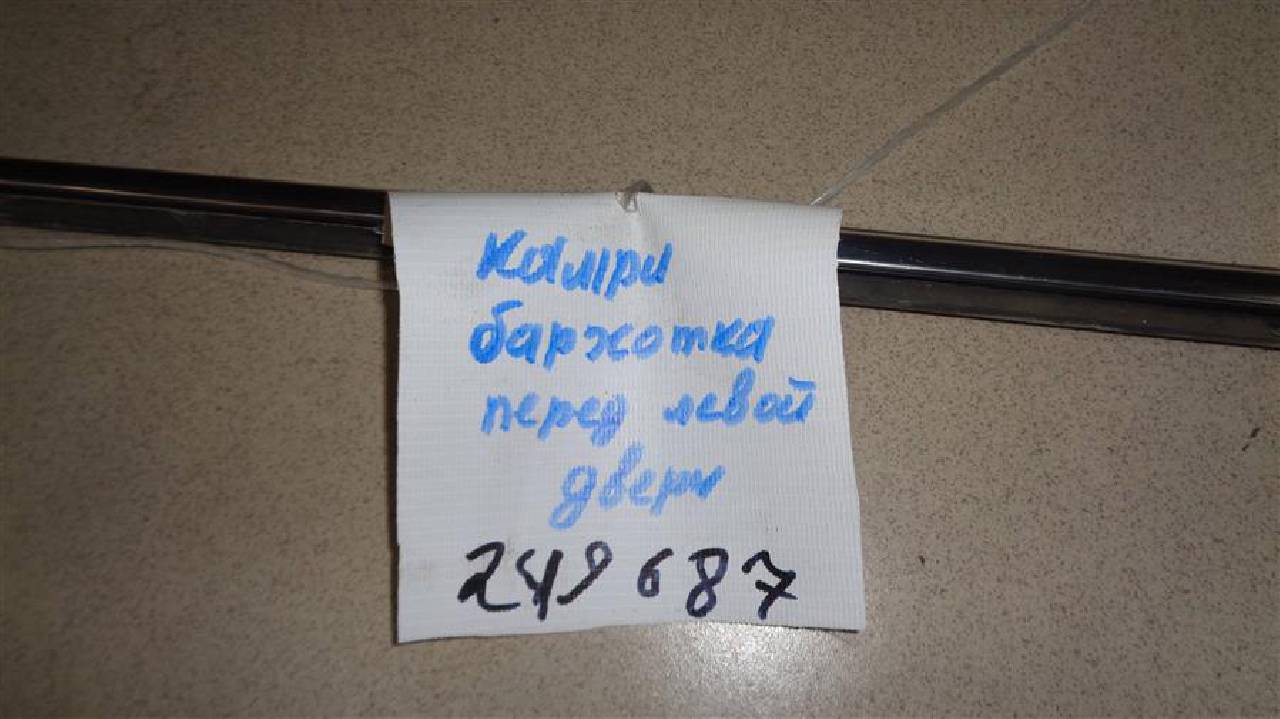 Камри
бархотка
перед левой
двери
249687